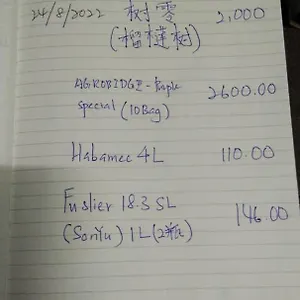 24/8/2022 树零 2,000
(榴梿树)
AGROBIDGE - Purple 2600.00
Special (10Bag)
Habamec 4L 110.00
Fuslier 18.3 SL 146.00
(SonYu) 1L (2瓶)